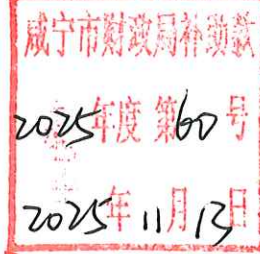 咸宁市财政局补助款
2025年度 第60号
2025年11月13日